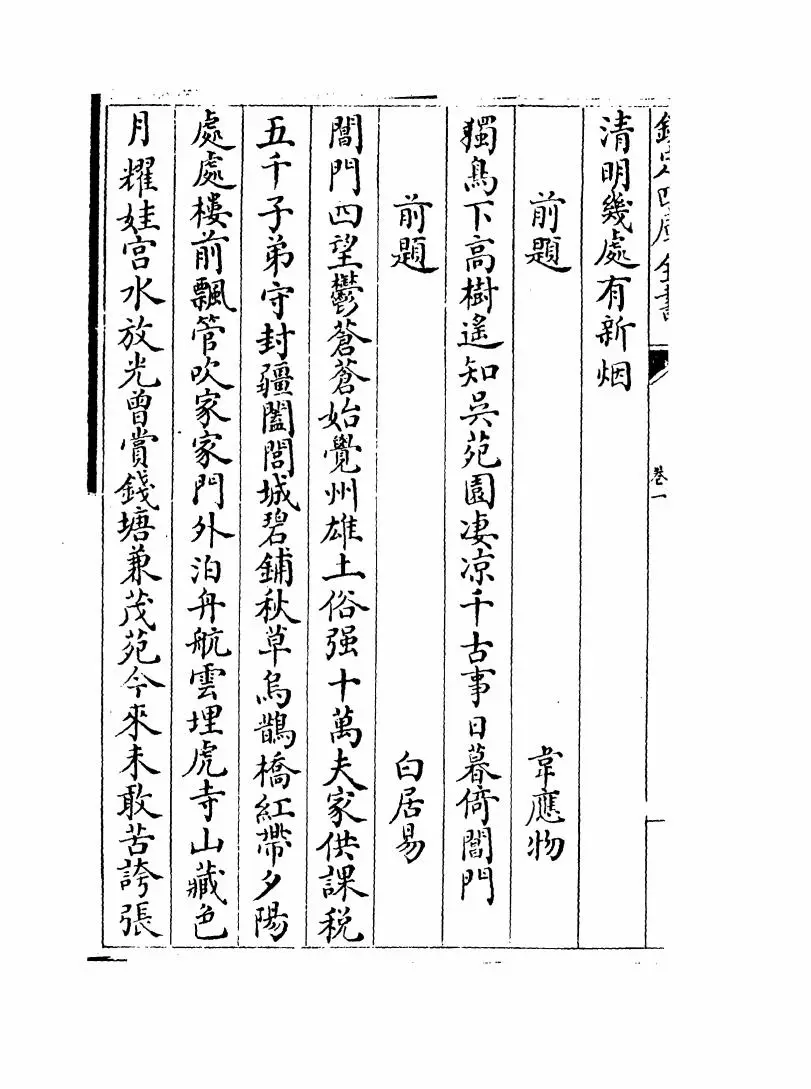 欽定四庫全書
卷一
清明幾處有新烟
前題 韋應物
獨鳥下高樹遙知吳苑園凄凉千古事日暮倚閶門
前題 白居易
閶門四望鬱蒼蒼始覺州雄土俗强十萬夫家供課税
五千子弟守封疆闔閭城碧鋪秋草烏鵲橋紅帶夕陽
處處樓前飄管吹家家門外泊舟航雲埋虎寺山藏色
月耀娃宫水放光曾賞錢塘兼茂苑今來未敢苦誇張